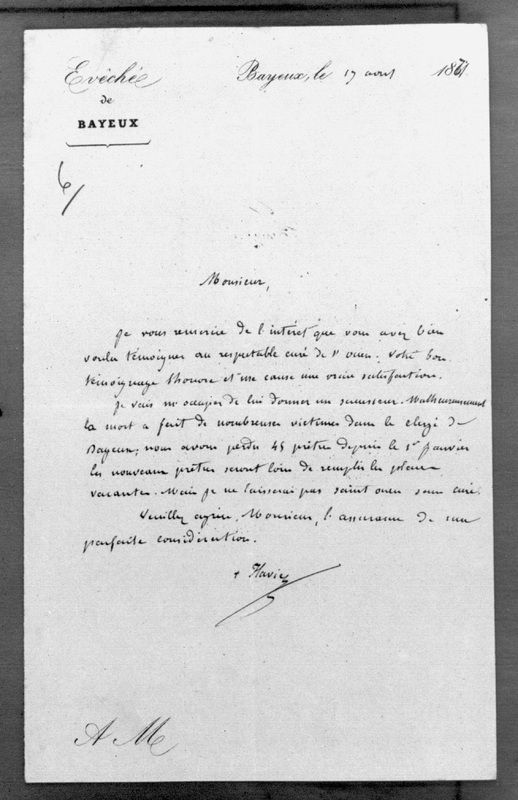 Evêché
de
BAYEUX
Bayeux, le 17 août 1871
Monsieur,
Je vous remercie de l'intérêt que vous avez bien
voulu témoigner au respectable curé de St ouen. Votre bon
témoignage l'honore et me cause une vraie satisfaction.
Je vais m'occuper de lui donner un successeur. Malheureusement
la mort a fait de nombreuses victimes dans le clergé de
Bayeux; nous avons perdu 45 prêtres depuis le 1er janvier
les nouveaux prêtres seront loin de remplir les places
vacantes. Mais je ne laisserai pas saint ouen sans curé.
Veuillez agréer, Monsieur, l'assurance de ma
parfaite considération.
+ Flavien
A M